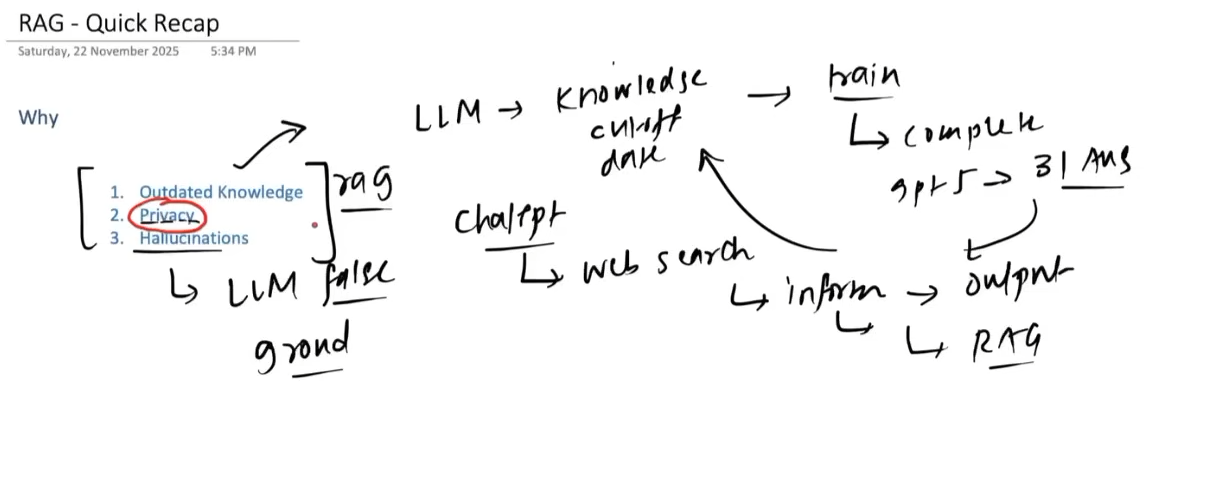 RAG - Quick Recap
Saturday, 22 November 2025 5:34 PM
Why
1. Outdated Knowledge
2. Privacy
3. Hallucinations
rag
LLM false
grond
LLM → Knowledge cutoff date → train
complete
gpt 5 → 31 Aug
Chatgpt
web search
inform → output
RAG